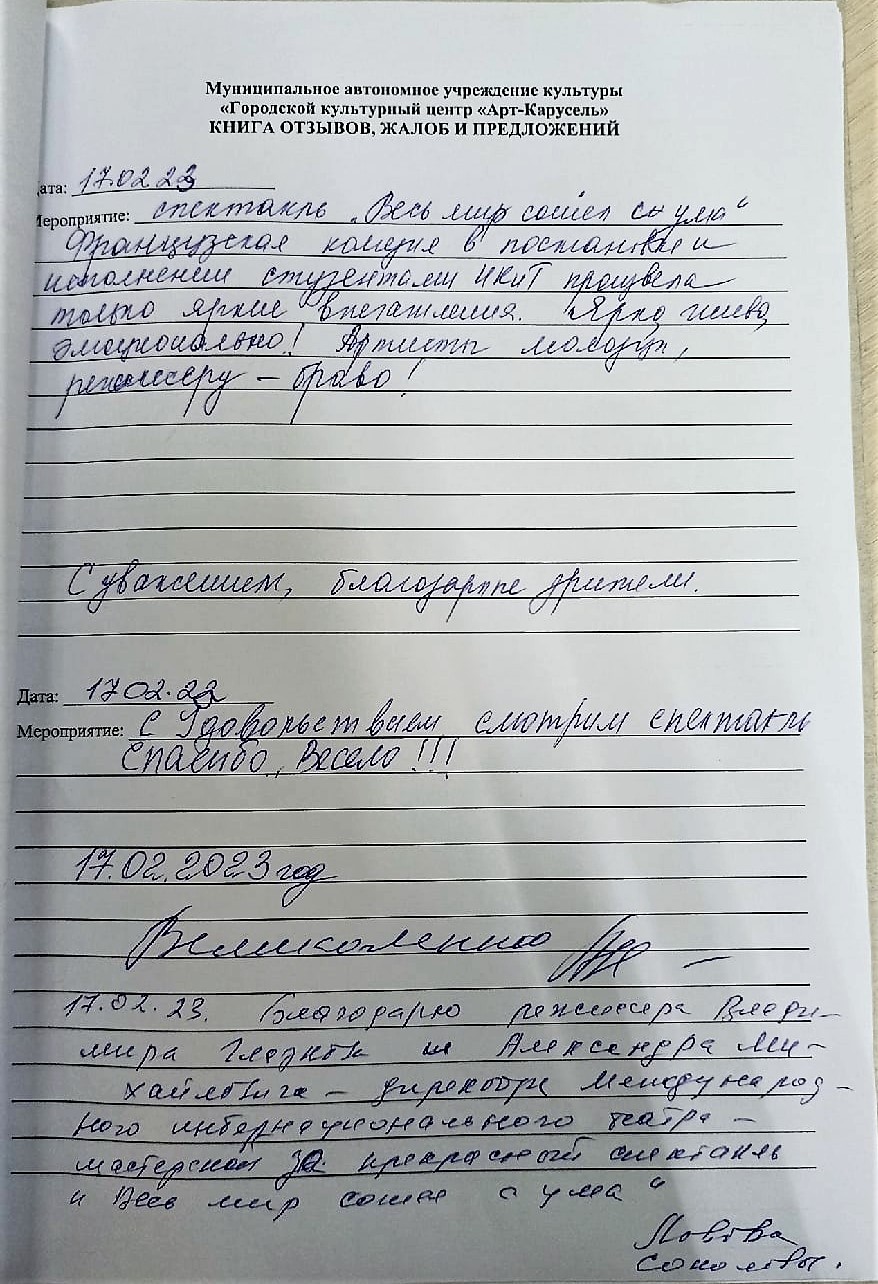 Муниципальное автономное учреждение культуры
«Городской культурный центр «Арт-Карусель»
КНИГА ОТЗЫВОВ, ЖАЛОБ И ПРЕДЛОЖЕНИЙ
ата: 17.02 23
Мероприятие: спектакль „Весь мир сошел с ума“
Французская комедия в постановке и
исполнении студентами ИКиТ произвела
только яркие впечатления. Ярко, живо,
эмоционально! Артисты молодцы,
режиссеру – браво!
С уважением, благодарные зрители.
Дата: 17 02.23
Мероприятие: С Удовольствием смотрим спектакль
Спасибо, Весело!!!
17.02.2023 год
Великолепно
17.02.23. Благодарю режиссера Влади-
мира и Александра Ми-
хайловича – директора Международ-
ного интернационального театра –
мастерской за прекрасный спектакль
„Весь мир сошел с ума“